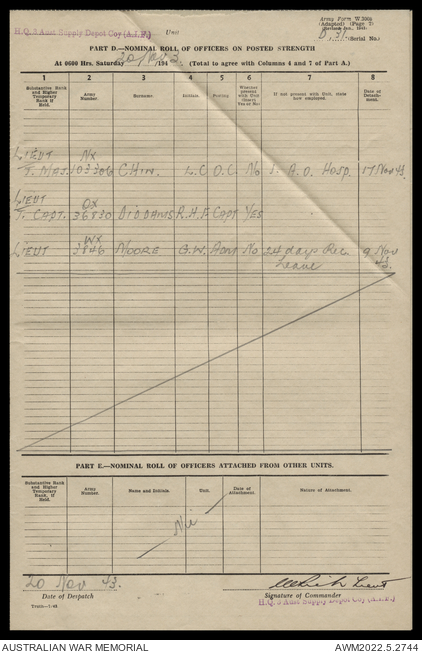 H.Q. 3 Aust Supply Depot Coy (A.I.F.) Unit
Army Form W 3008
(Adapted) (Page 7)
(Serial No.)
PART D.—NOMINAL ROLL OF OFFICERS ON POSTED STRENGTH
At 0600 Hrs. Saturday 20/Nov 3. /194 (Total to agree with Columns 4 and 7 of Part A.)
1 2 3 4 5 6 7 8
Substantive Rank and Higher Temporary Rank if Held. Army Number. Surname. Initials. Posting. Whether present with Unit (State) Yes or No. If not present with Unit, state how employed. Date of Detachment.
LIEUT NX
T. MAJ. 103306 CHIN. L.C O.C. No 1. A.O. Hosp. 17 Nov 43
LIEUT QX
T. CAPT. 36830 DIDDAMS R.H.F. Capt YES
LIEUT WX 3846 MOORE G.W. Adm No 24 days Rec. Leave 9 Nov 43.
PART E.—NOMINAL ROLL OF OFFICERS ATTACHED FROM OTHER UNITS.
Substantive Rank and Higher Temporary Rank, if Held. Army Number. Name and Initials. Unit. Date of Attachment. Nature of Attachment.
Nil
20 Nov 43. Lieut
Date of Despatch Signature of Commander
H.Q. 3 Aust Supply Depot Coy (A.I.F.)
AUSTRALIAN WAR MEMORIAL AWM2022.5.2744